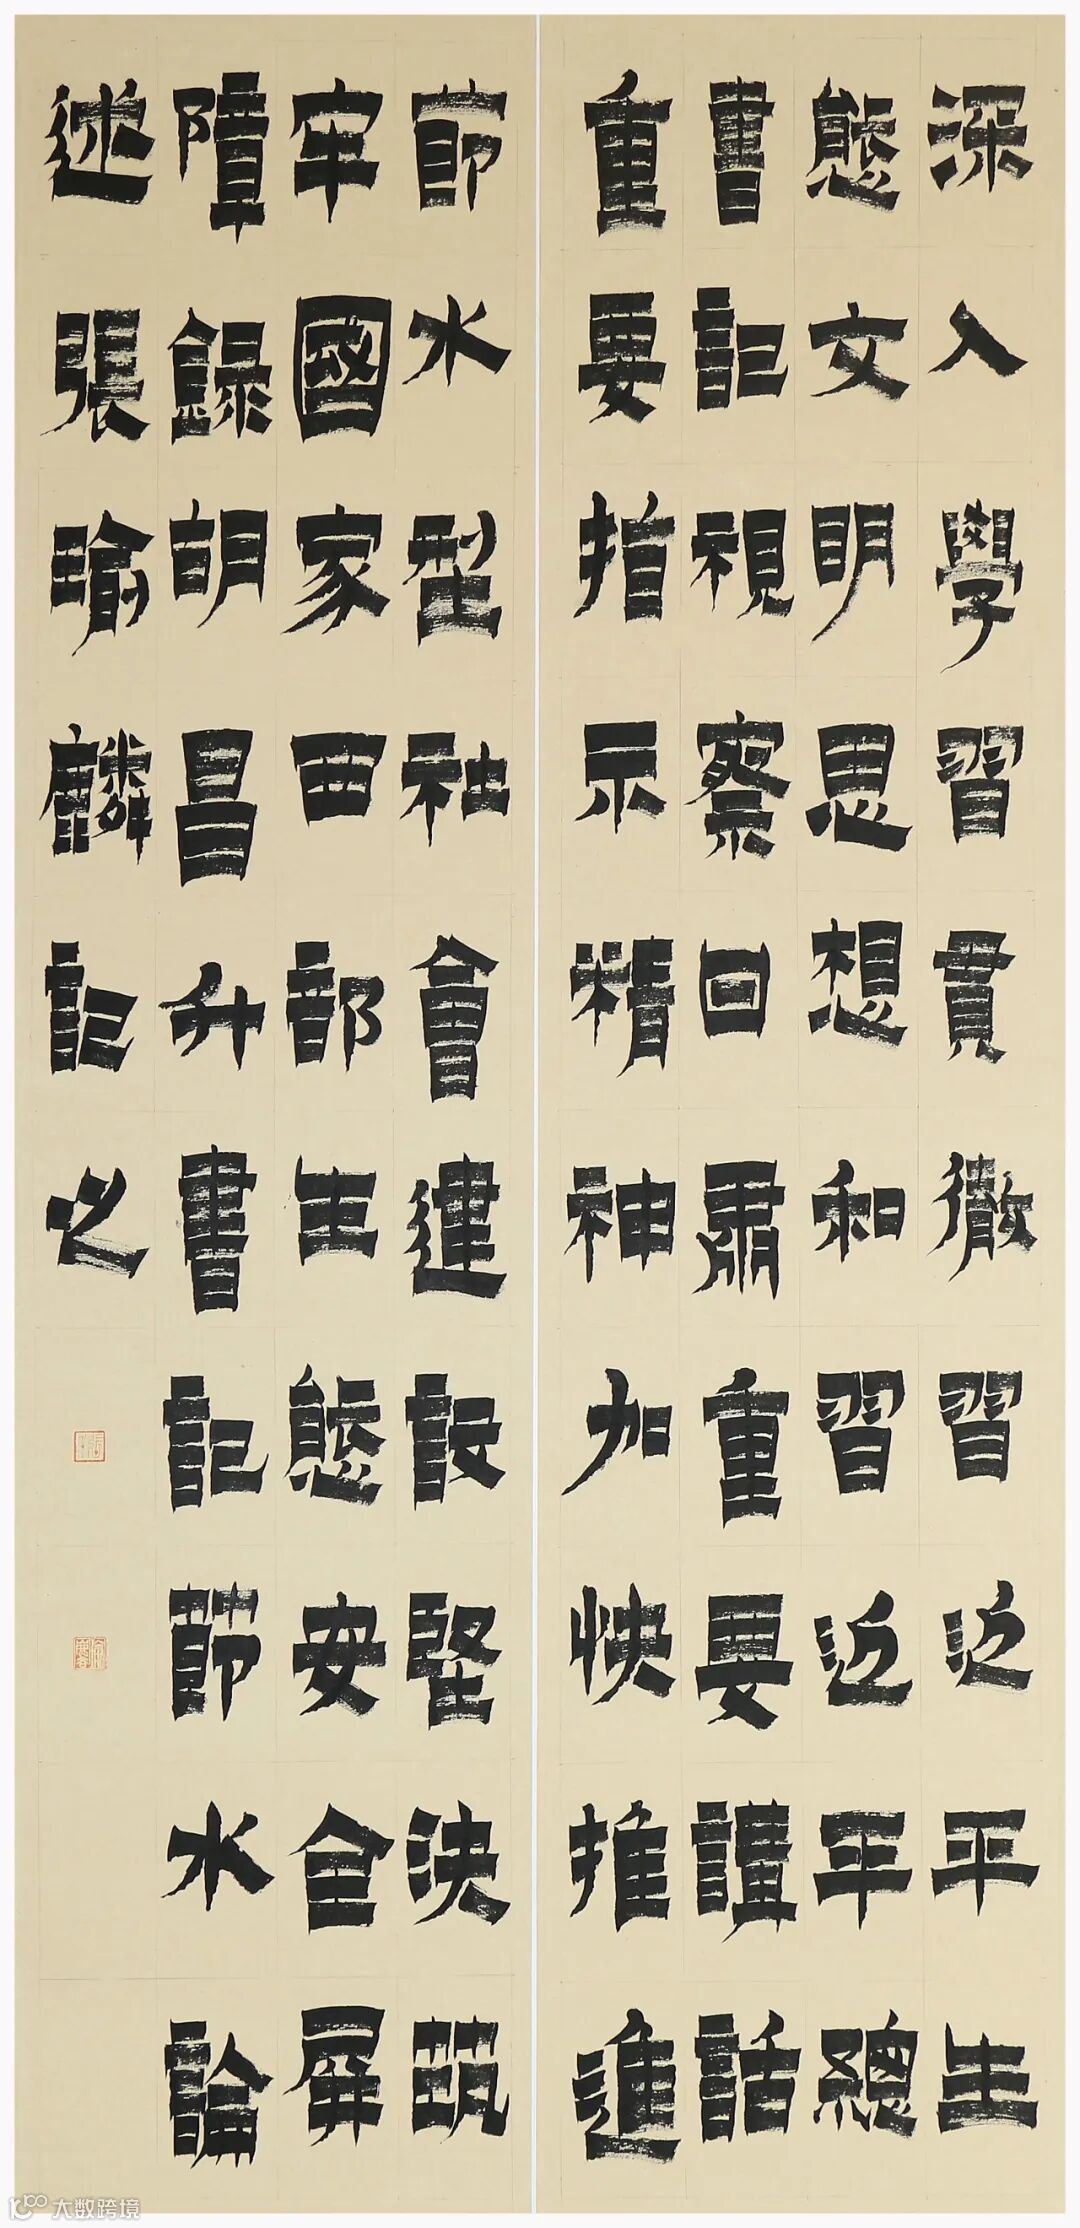 深入學習貫徹習近平生
態文明思想和習近平總
書記視察甘肅重要講話
重要指示精神加快推進
節水型社會建設堅決筑
牢國家西部生態安全屏
障錄胡昌升書記節水論
述張瑜麟記之
大数跨境